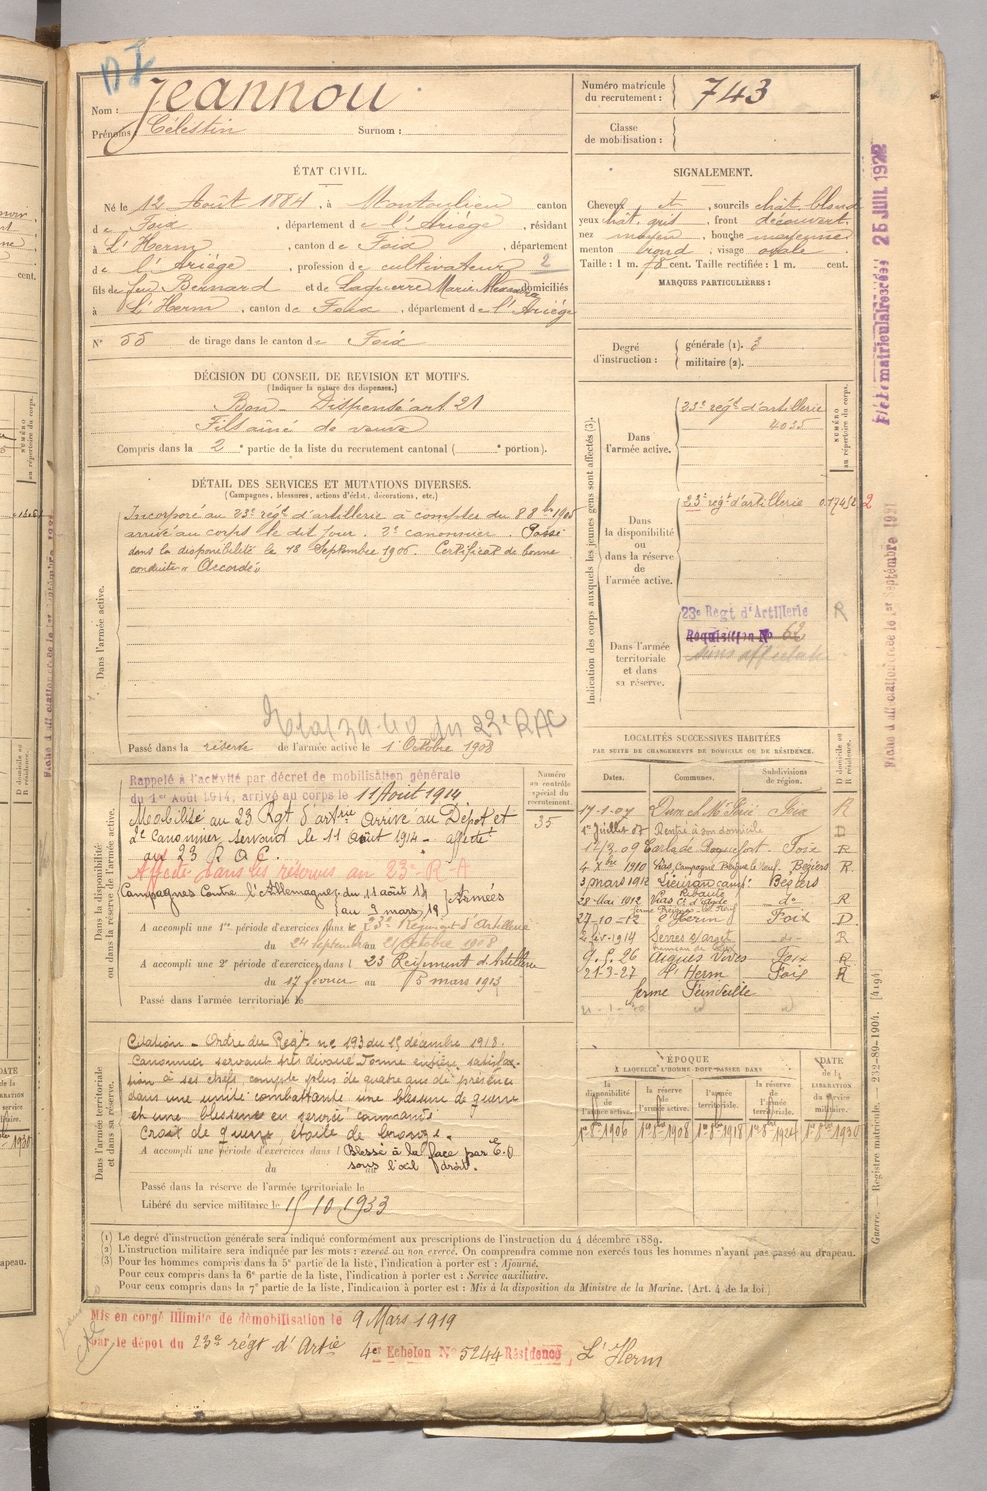 Nom : Jeannou
Prénoms : Célestin Surnom :
Numéro matricule du recrutement : 743
Classe de mobilisation :
ÉTAT CIVIL.
Né le 12 Août 1884, à Montoulieu canton
de Foix, département de l'Ariège, résidant
à L'Herm, canton de Foix, département
de l'Ariège, profession de cultivateur 2
fils de feu Bernard et de Laguerre Marie domiciliés
à L'Herm, canton de Foix, département de l'Ariège
N° 55 de tirage dans le canton de Foix
SIGNALEMENT.
Cheveux et, sourcils chât. blond
yeux chât. gris, front découvert.
nez moyen, bouche moyenne
menton rond, visage ovale
Taille : 1 m. 78 cent. Taille rectifiée : 1 m. cent.
MARQUES PARTICULIÈRES :
Degré d'instruction : générale (1). 3
militaire (2).
DÉCISION DU CONSEIL DE REVISION ET MOTIFS.
(Indiquer la nature des dispenses.)
Bon Dispensé art. 21
Fils aîné de veuve
Compris dans la 2e partie de la liste du recrutement cantonal ( e portion).
DÉTAIL DES SERVICES ET MUTATIONS DIVERSES.
(Campagnes, blessures, actions d'éclat, décorations, etc.)
Dans l'armée active.
Incorporé au 23e régt d'artillerie à compter du 8 8bre 1905
arrivé au corps le dit jour. 2e canonnier. Passé
dans la disponibilité le 18 Septembre 1906. Certificat de bonne
conduite « Accordé »
du 23e RAC
Passé dans la réserve de l'armée active le 1 Octobre 1908
Indication des corps auxquels les jeunes gens sont affectés (3).
NUMÉRO au répertoire du corps.
Dans l'armée active.
23e régt d'artillerie
4035
Dans la disponibilité ou dans la réserve de l'armée active.
23e régt d'artillerie
Dans l'armée territoriale et dans sa réserve.
23e Regt d'Artillerie R
Requisition No 62
sans affectation
Dans la disponibilité ou dans la réserve de l'armée active.
Numéro au contrôle spécial du recrutement.
35
Rappelé à l'activité par décret de mobilisation générale
du 1er Août 1914, arrivé au corps le 11 Août 1914
Mobilisé au 23 Rgt d'artrie Arrivé au Dépôt et
2e Canonnier servant le 11 Août 1914 - affecté
au 23 R A C.
Affecté dans les réserves au 23e R.A
Campagnes Contre l'Allemagne du 11 août 14
au 9 mars 19 Armées
A accompli une 1re période d'exercices dans le 23e Régiment d'Artillerie
du 24 septembre au 21 Octobre 1908
A accompli une 2e période d'exercices dans l 23 Régiment d'Artillerie
du 17 février au 5 mars 1913
Passé dans l'armée territoriale le
LOCALITÉS SUCCESSIVES HABITÉES
PAR SUITE DE CHANGEMENTS DE DOMICILE OU DE RÉSIDENCE.
Dates. Communes. Subdivisions de région. D domicile ou R résidence.
17-1-07 Foix R
1er Juillet 07 Rentré à son domicile D
12/3.09 Carla de Roquefort Foix R
4 Xbre 1910 Vias, Campagne Béziers R
3 mars 1912 Lieuran Béziers
28 Mai 1912 Vias do R
27-10-12 L'Herm Foix D
2 fév-1914 Serres s/Arget do R
9.5.26 Aigues Vives Foix R
21-3-27 L'Herm Foix R
ferme
Dans l'armée territoriale et dans sa réserve.
Citation - Ordre du Regt no 193 du 15 décembre 1918.
Canonnier servant très dévoué donne entière satisfac-
tion à ses chefs, compte plus de quatre ans de présence
dans une unité combattante une blessure de guerre
et une blessure en service commandé
Croix de guerre étoile de bronze.
A accompli une période d'exercices dans l Blessé à la face par E.O
du au sous l'œil droit.
Passé dans la réserve de l'armée territoriale le
Libéré du service militaire le 15 10 1933
ÉPOQUE
À LAQUELLE L'HOMME DOIT PASSER DANS
DATE de la LIBÉRATION du service militaire.
la disponibilité de l'armée active. la réserve de l'armée active. l'armée territoriale. la réserve de l'armée territoriale.
1er 8bre 1906 1er 8bre 1908 1er 8bre 1918 1er 8bre 1924 1er 8bre 1930
(1) Le degré d'instruction générale sera indiqué conformément aux prescriptions de l'instruction du 4 décembre 1889.
(2) L'instruction militaire sera indiquée par les mots : exercé ou non exercé. On comprendra comme non exercés tous les hommes n'ayant pas passé au drapeau.
(3) Pour les hommes compris dans la 5e partie de la liste, l'indication à porter est : Ajourné.
Pour ceux compris dans la 6e partie de la liste, l'indication à porter est : Service auxiliaire.
Pour ceux compris dans la 7e partie de la liste, l'indication à porter est : Mis à la disposition du Ministre de la Marine. (Art. 4 de la loi.)
Mis en congé illimité de démobilisation le 9 Mars 1919
par le dépôt du 23e régt d'Artie 4er Echelon No 5244 Résidence, L'Herm
Guerre. — Registre matricule. — 232-89-1904. [4194
25 JUIL 1922